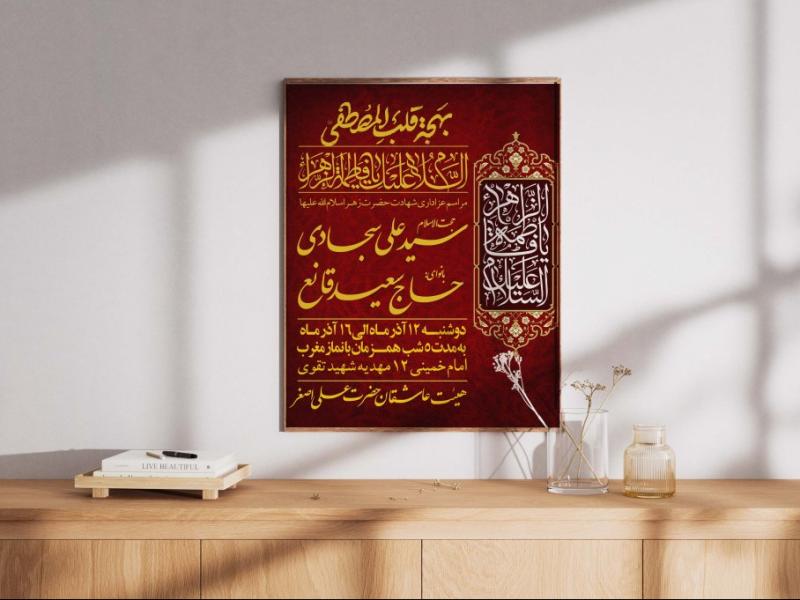 بهجة قلب المصطفی
السلام علیک یا فاطمة الزهراء
مراسم عزاداری شهادت حضرت زهرا سلام الله علیها
حجت الاسلام
سید علی سجادی
بانوای:
حاج سعید قانع
دوشنبه ۱۲ آذر ماه الی ۱۶ آذر ماه
به مدت ۵ شب همزمان با نماز مغرب
امام خمینی ۱۲ مهدیه شهید تقوی
هیئت عاشقان حضرت علی اصغر
السلام علیک یا فاطمة الزهراء
LIVE BEAUTIFUL